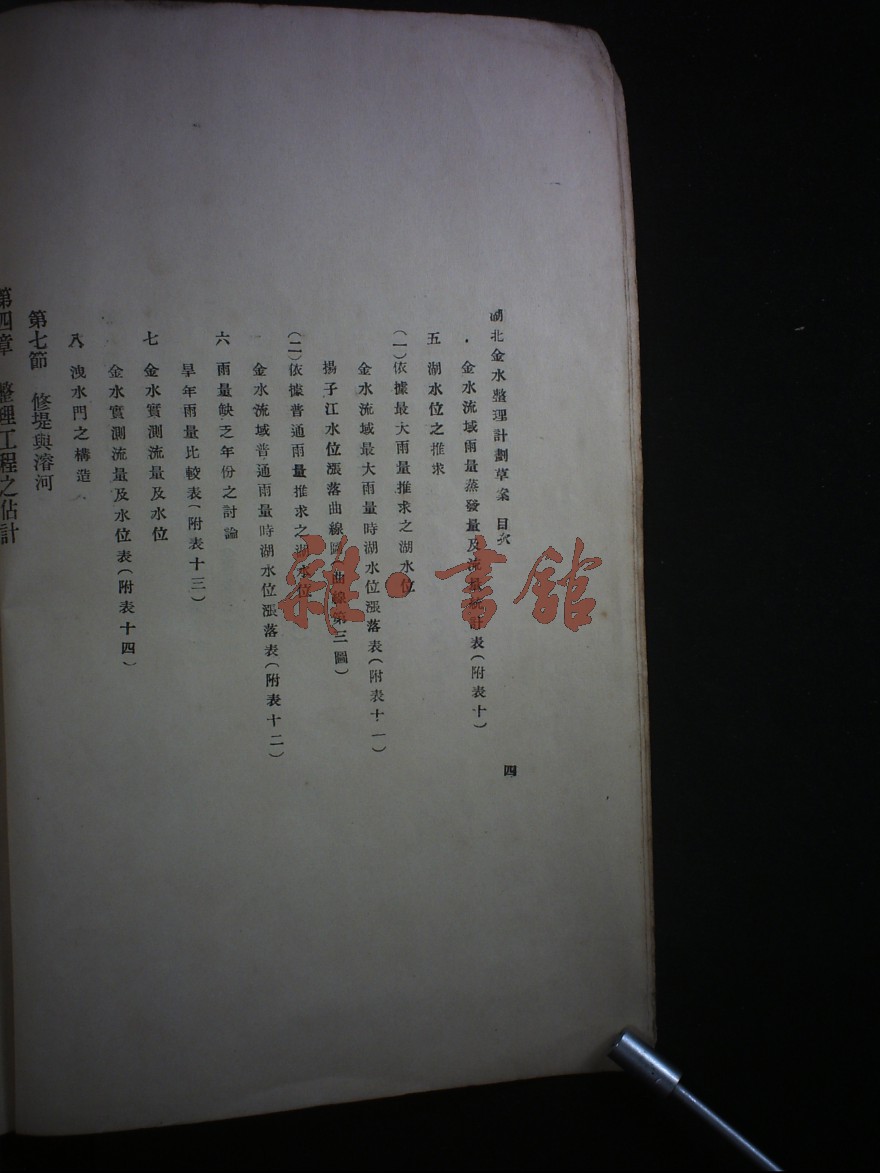 湖北金水整理計劃草案 目次
四
金水流域雨量蒸發量及流量統計表(附表十)
五 湖水位之推求
(一)依據最大雨量推求之湖水位
金水流域最大雨量時湖水位漲落表(附表十一)
揚子江水位漲落曲線圖(曲線第三圖)
(二)依據普通雨量推求之湖水位
金水流域普通雨量時湖水位漲落表(附表十二)
六 雨量缺乏年份之討論
旱年雨量比較表(附表十三)
七 金水實測流量及水位
金水實測流量及水位表(附表十四)
八 洩水門之構造
第七節 修堤與濬河
第四章 整理工程之估計
雜·書館